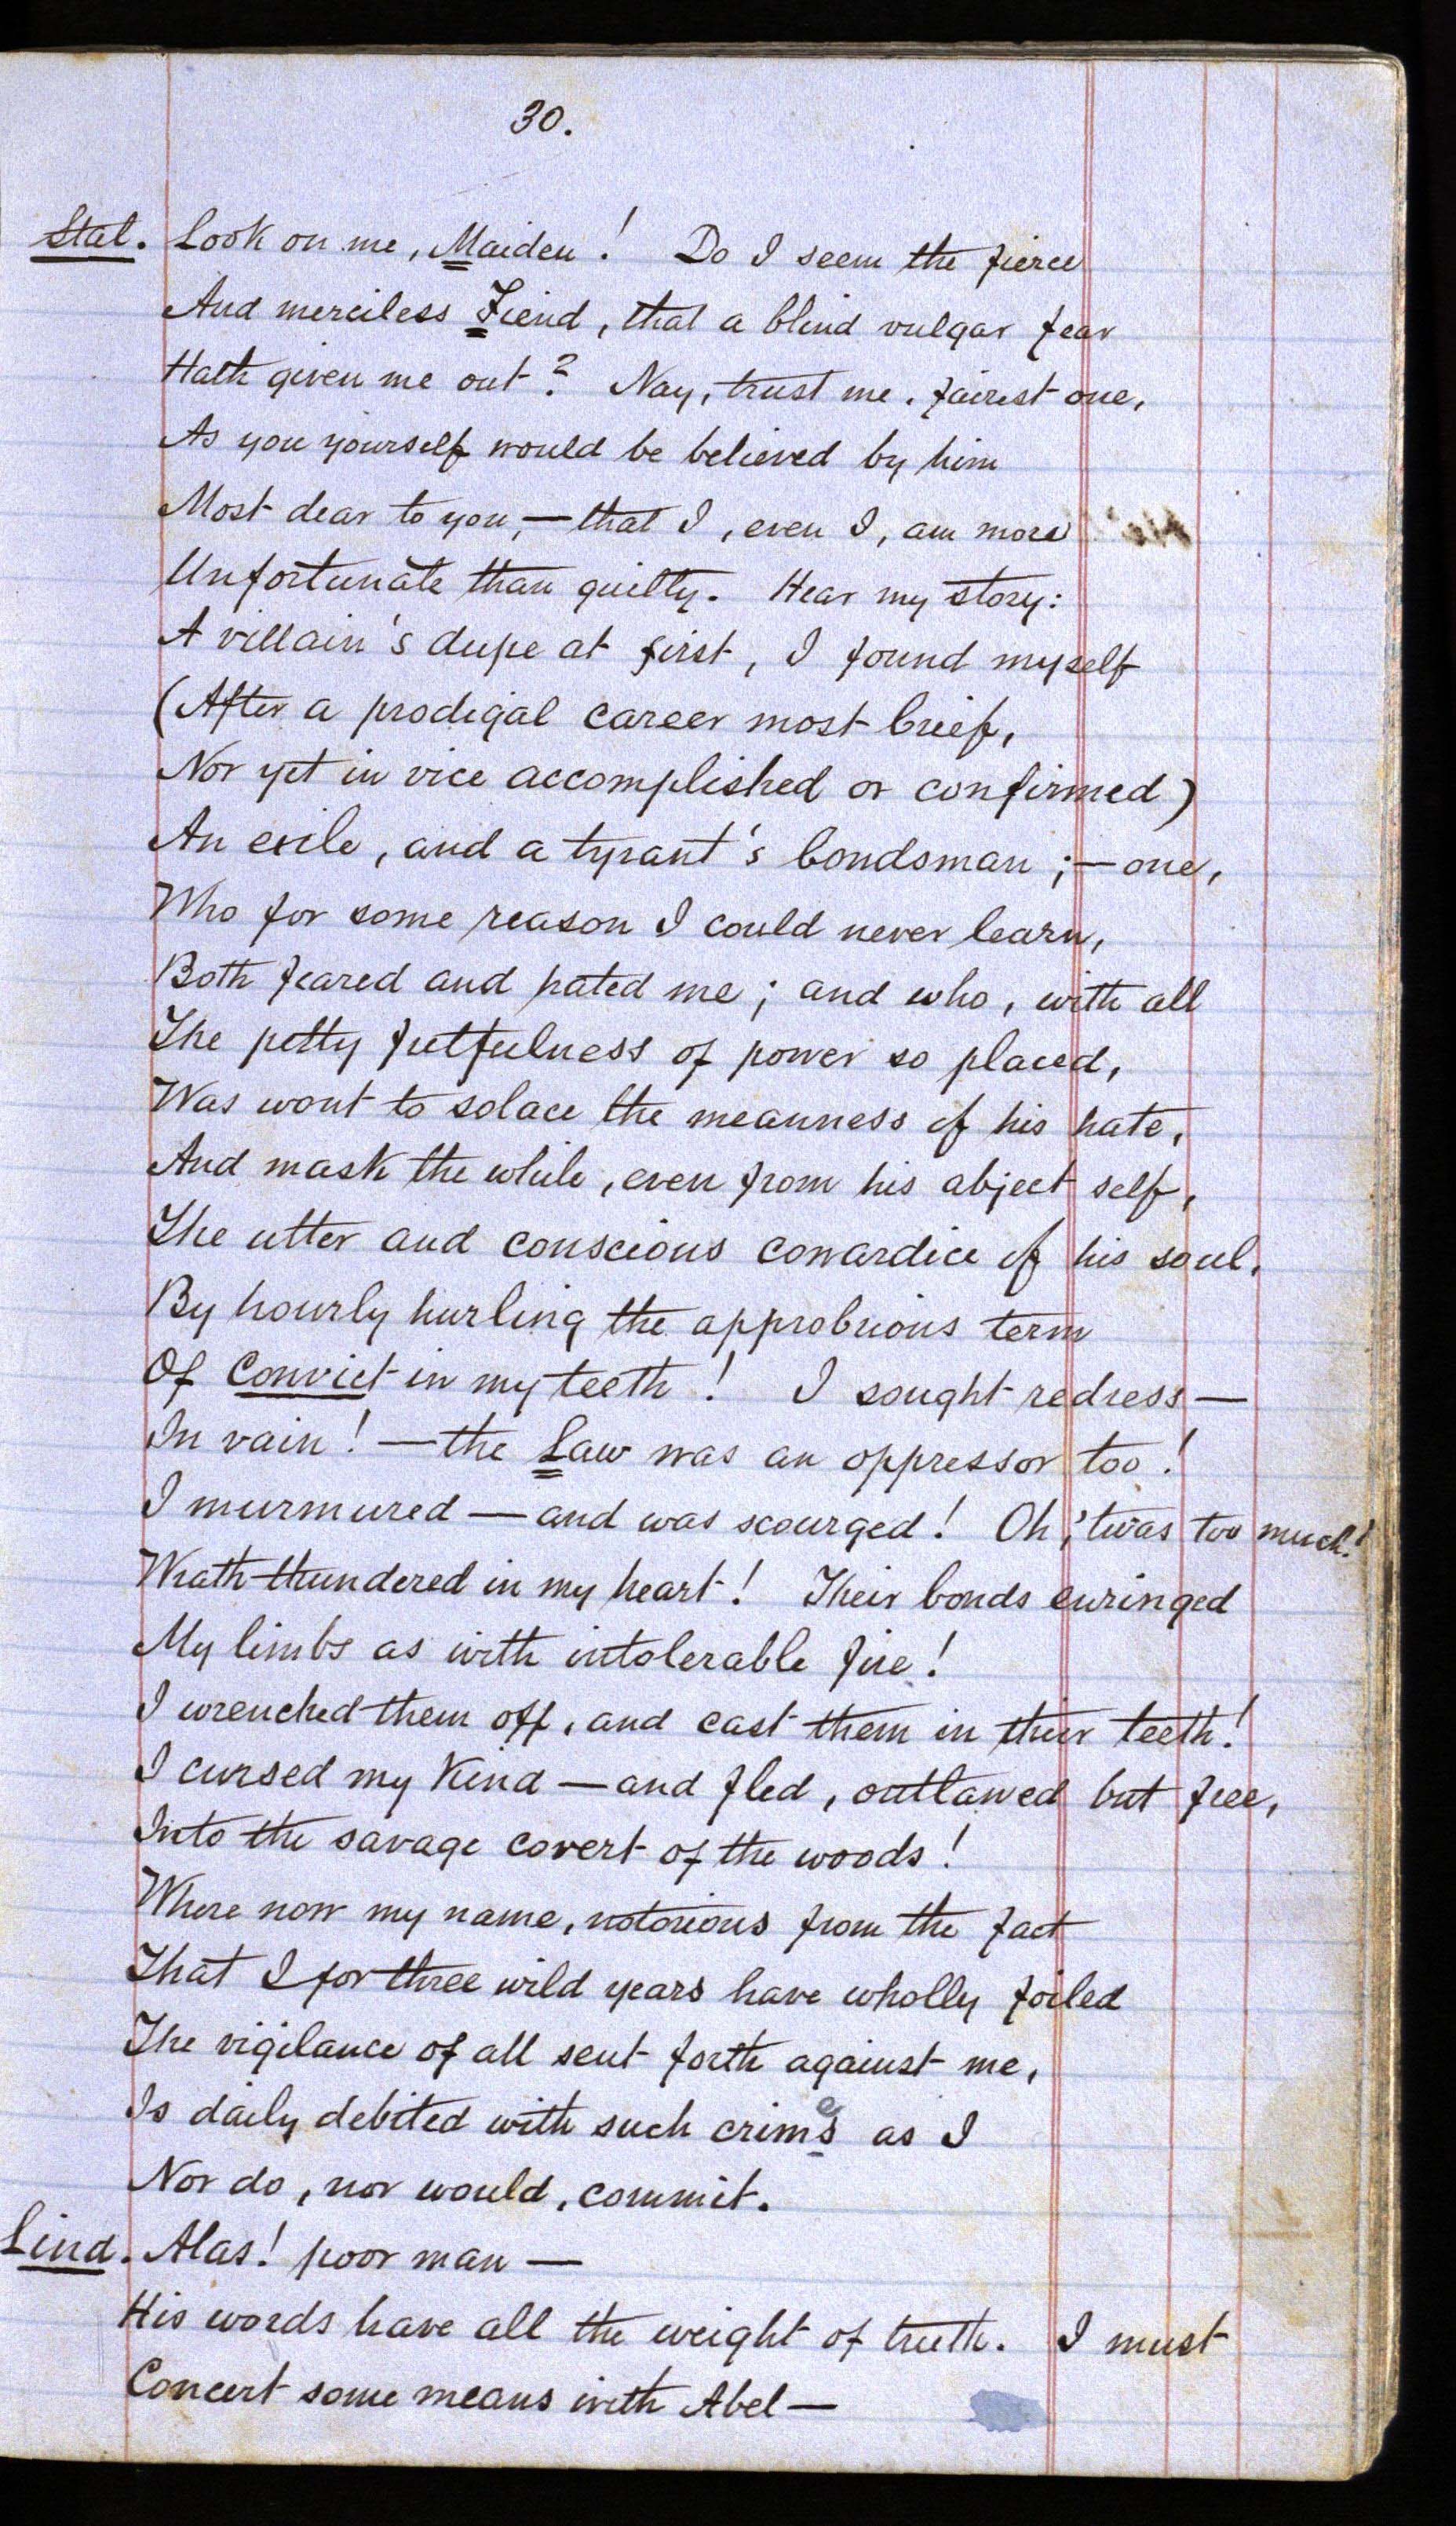 30.
Stal. Look on me, Maiden! Do I seem the fierce
And merciless Fiend, that a blind vulgar fear
Hath given me out? Nay, trust me, fairest one,
As you yourself would be believed by him
Most dear to you,—that I, even I, am more
Unfortunate than guilty. Hear my story:
A villain's dupe at first, I found myself
(After a prodigal career most brief,
Nor yet in vice accomplished or confirmed)
An exile, and a tyrant's bondsman;—one,
Who for some reason I could never learn,
Both feared and hated me; and who, with all
The petty fretfulness of power so placed,
Was wont to solace the meanness of his hate,
And mask the while, even from his abject self,
The utter and conscious cowardice of his soul,
By hourly hurling the approbrious term
Of Convict in my teeth! I sought redress—
In vain!—the Law was an oppressor too!
I murmured—and was scourged! Oh, 'twas too much!
Wrath thundered in my heart! Their bonds enringed
My limbs as with intolerable fire!
I wrenched them off, and cast them in their teeth!
I cursed my Kind—and fled, outlawed but free,
Into the savage covert of the woods!
Where now my name, notorious from the fact
That I for three wild years have wholly foiled
The vigilance of all sent forth against me,
Is daily debited with such crimes as I
Nor do, nor would, commit.
Lind. Alas! poor man—
His words have all the weight of truth. I must
Concert some means with Abel—